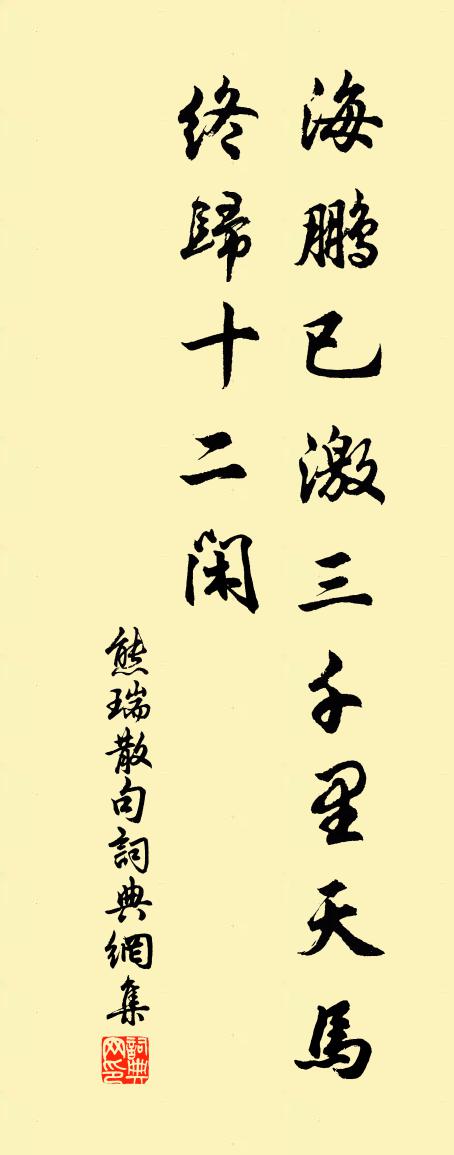 海鹏已激三千里天馬
終歸十二閑
熊瑞散句詞典網集
詞典网印